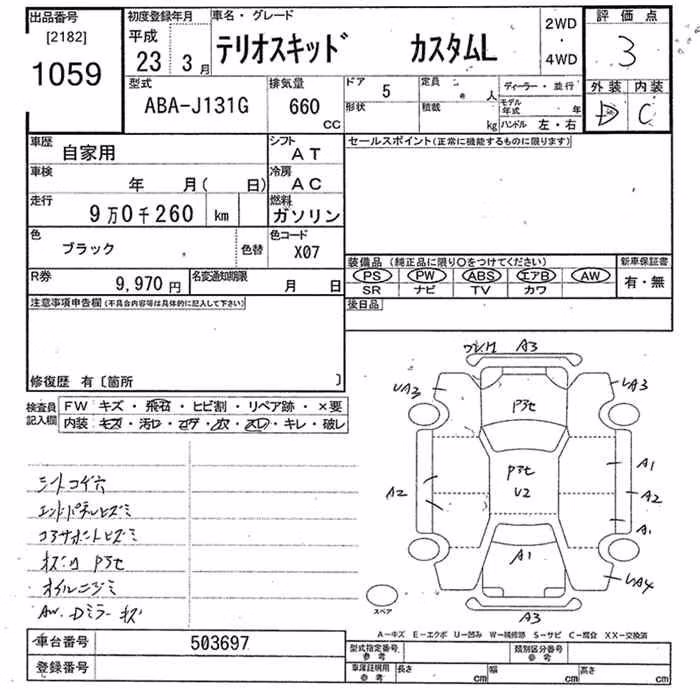 出品番号 初度登録年月 車名・グレード 2WD・4WD 評価点
[2182] 平成
1059 23年 3月 テリオスキッド カスタムL 3
型式 排気量 ドア 定員 ディーラー・並行 外装 内装
ABA-J131G 660 CC 5 人 モデル年式 年 D C
形状 積載 kg ハンドル 左・右
車歴 自家用 シフト AT セールスポイント(正常に機能するものに限ります)
車検 年 月( 日) 冷房 AC
走行 9万0千260 km 燃料 ガソリン
色 ブラック 色替 色コード X07
装備品(純正品に限り○をつけてください) 新車保証書
PS PW ABS エアB AW 有・無
SR ナビ TV カワ
R券 9,970円 名変通知期限 月 日
後日品
注意事項申告欄(不具合内容等は具体的に記入して下さい)
修復歴 有〔箇所 〕
検査員記入欄 FW キズ・飛石・ヒビ割・リペア跡・×要
内装 キズ・汚れ・コゲ・穴・スレ・キレ・破レ
シートコゲ穴
エンドパネルヒズミ
コアサポートヒズミ
オイルニジミ
AW.Dミラーキズ
A3
UA3
A3
Pアセ
Pアセ
U2
A1
A2
A2
A1
A1
UA4
A3
スペア
A-キズ E-エクボ U-凹み W-補修跡 S-サビ C-腐食 XX-交換済
車台番号 503697
登録番号
型式指定番号 参考 類別区分番号 参考
車庫証明用 参考 長さ cm 幅 cm 高さ cm